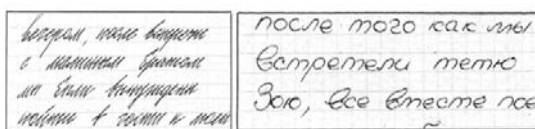 вечером, после встречи
с маминым братом
мы были вынуждены
пойти в гости к
после того как мы
встретели тетю
Зою, все вместе пое